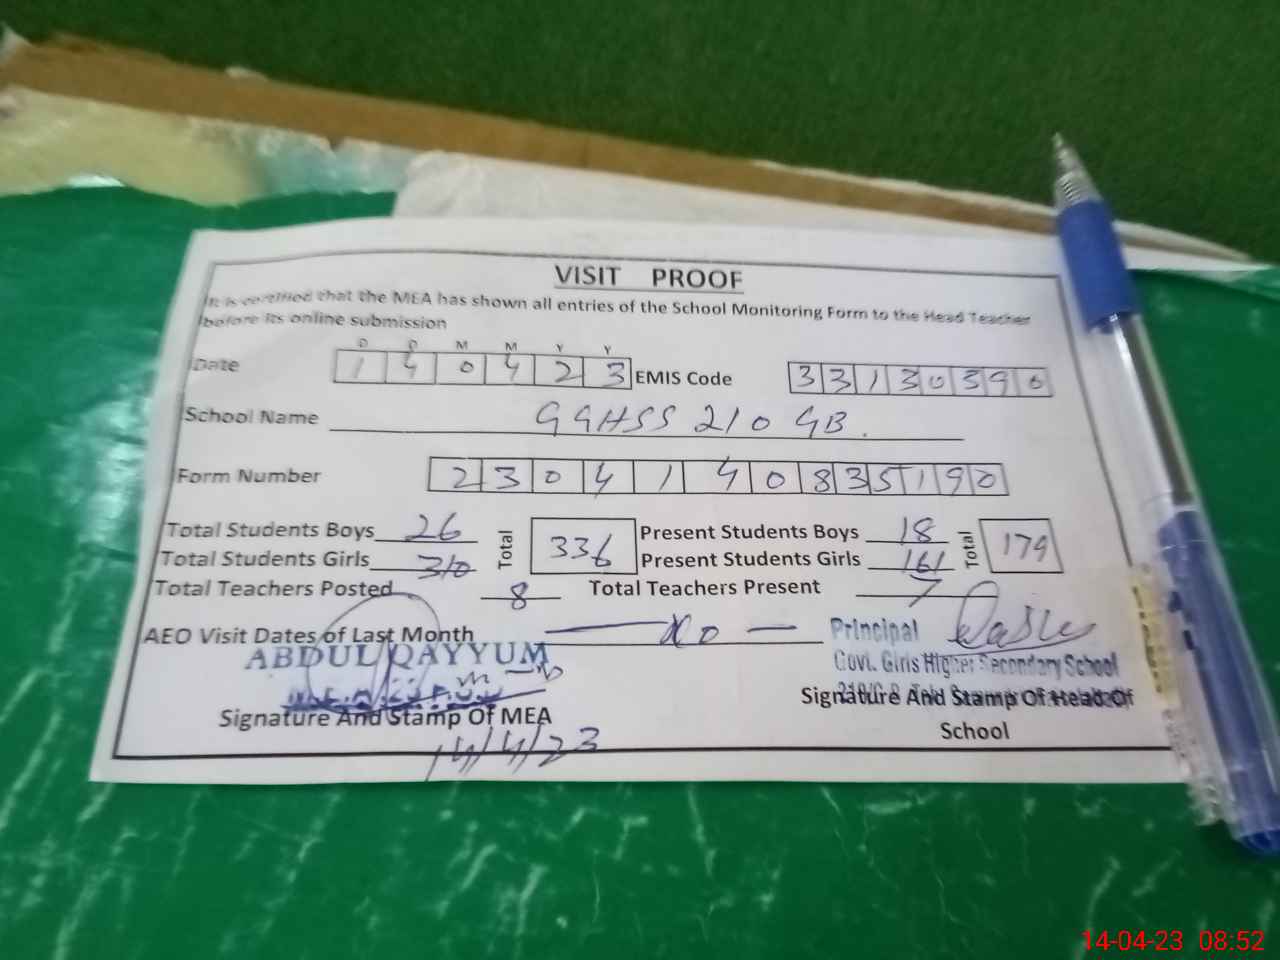 VISIT PROOF
It is certified that the MEA has shown all entries of the School Monitoring Form to the Head Teacher
before its online submission
D D M M Y Y
Date 1 4 0 4 2 3 EMIS Code 3 3 1 3 0 3 9 0
School Name GGHSS 210 GB.
Form Number 2 3 0 4 1 4 0 8 3 5 1 9 0
Total Students Boys 26 Total 336 Present Students Boys 18 Total 179
Total Students Girls 310 Present Students Girls 161
Total Teachers Posted 8 Total Teachers Present 7
AEO Visit Dates of Last Month No
Principal
ABDUL QAYYUM
Govt. Girls Higher Secondary School
Signature And Stamp Of MEA
Signature And Stamp Of Head Of
School
14/4/23
14-04-23 08:52